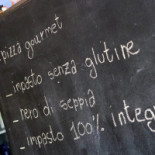 pizza gourmet
_impasto senza glutine
_nero di seppia
_impasto 100% integ